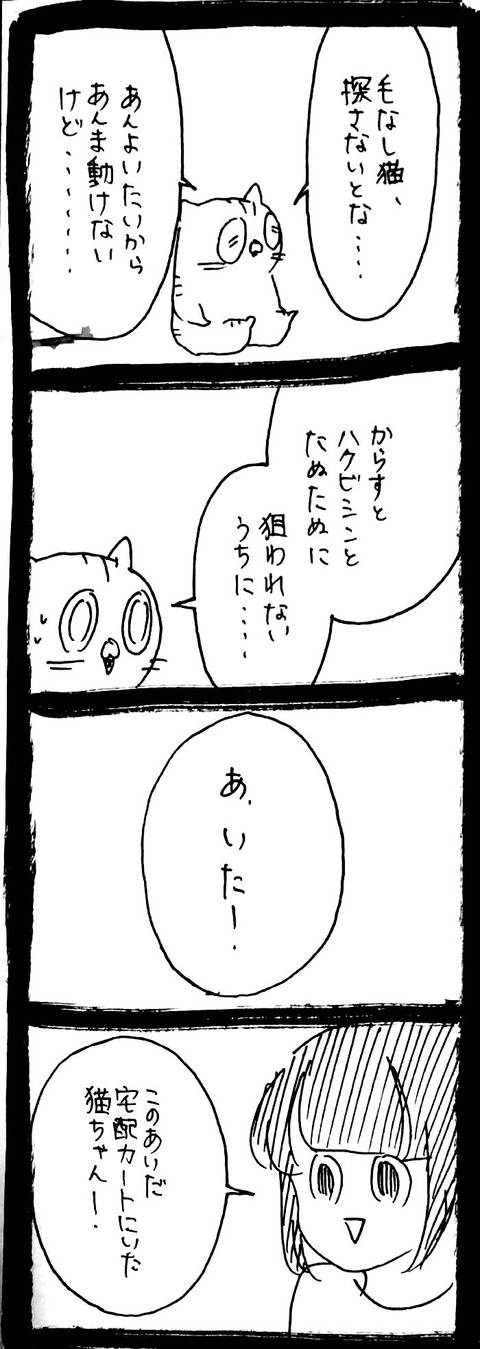 毛なし猫、
探さないとな‥‥
あんよいたいから
あんま動けない
けど‥‥‥‥
からすと
ハクビシンと
たぬたぬに
狙われない
うちに‥‥
あ、いたー！
このあいだ
宅配カートにいた
猫ちゃんー！